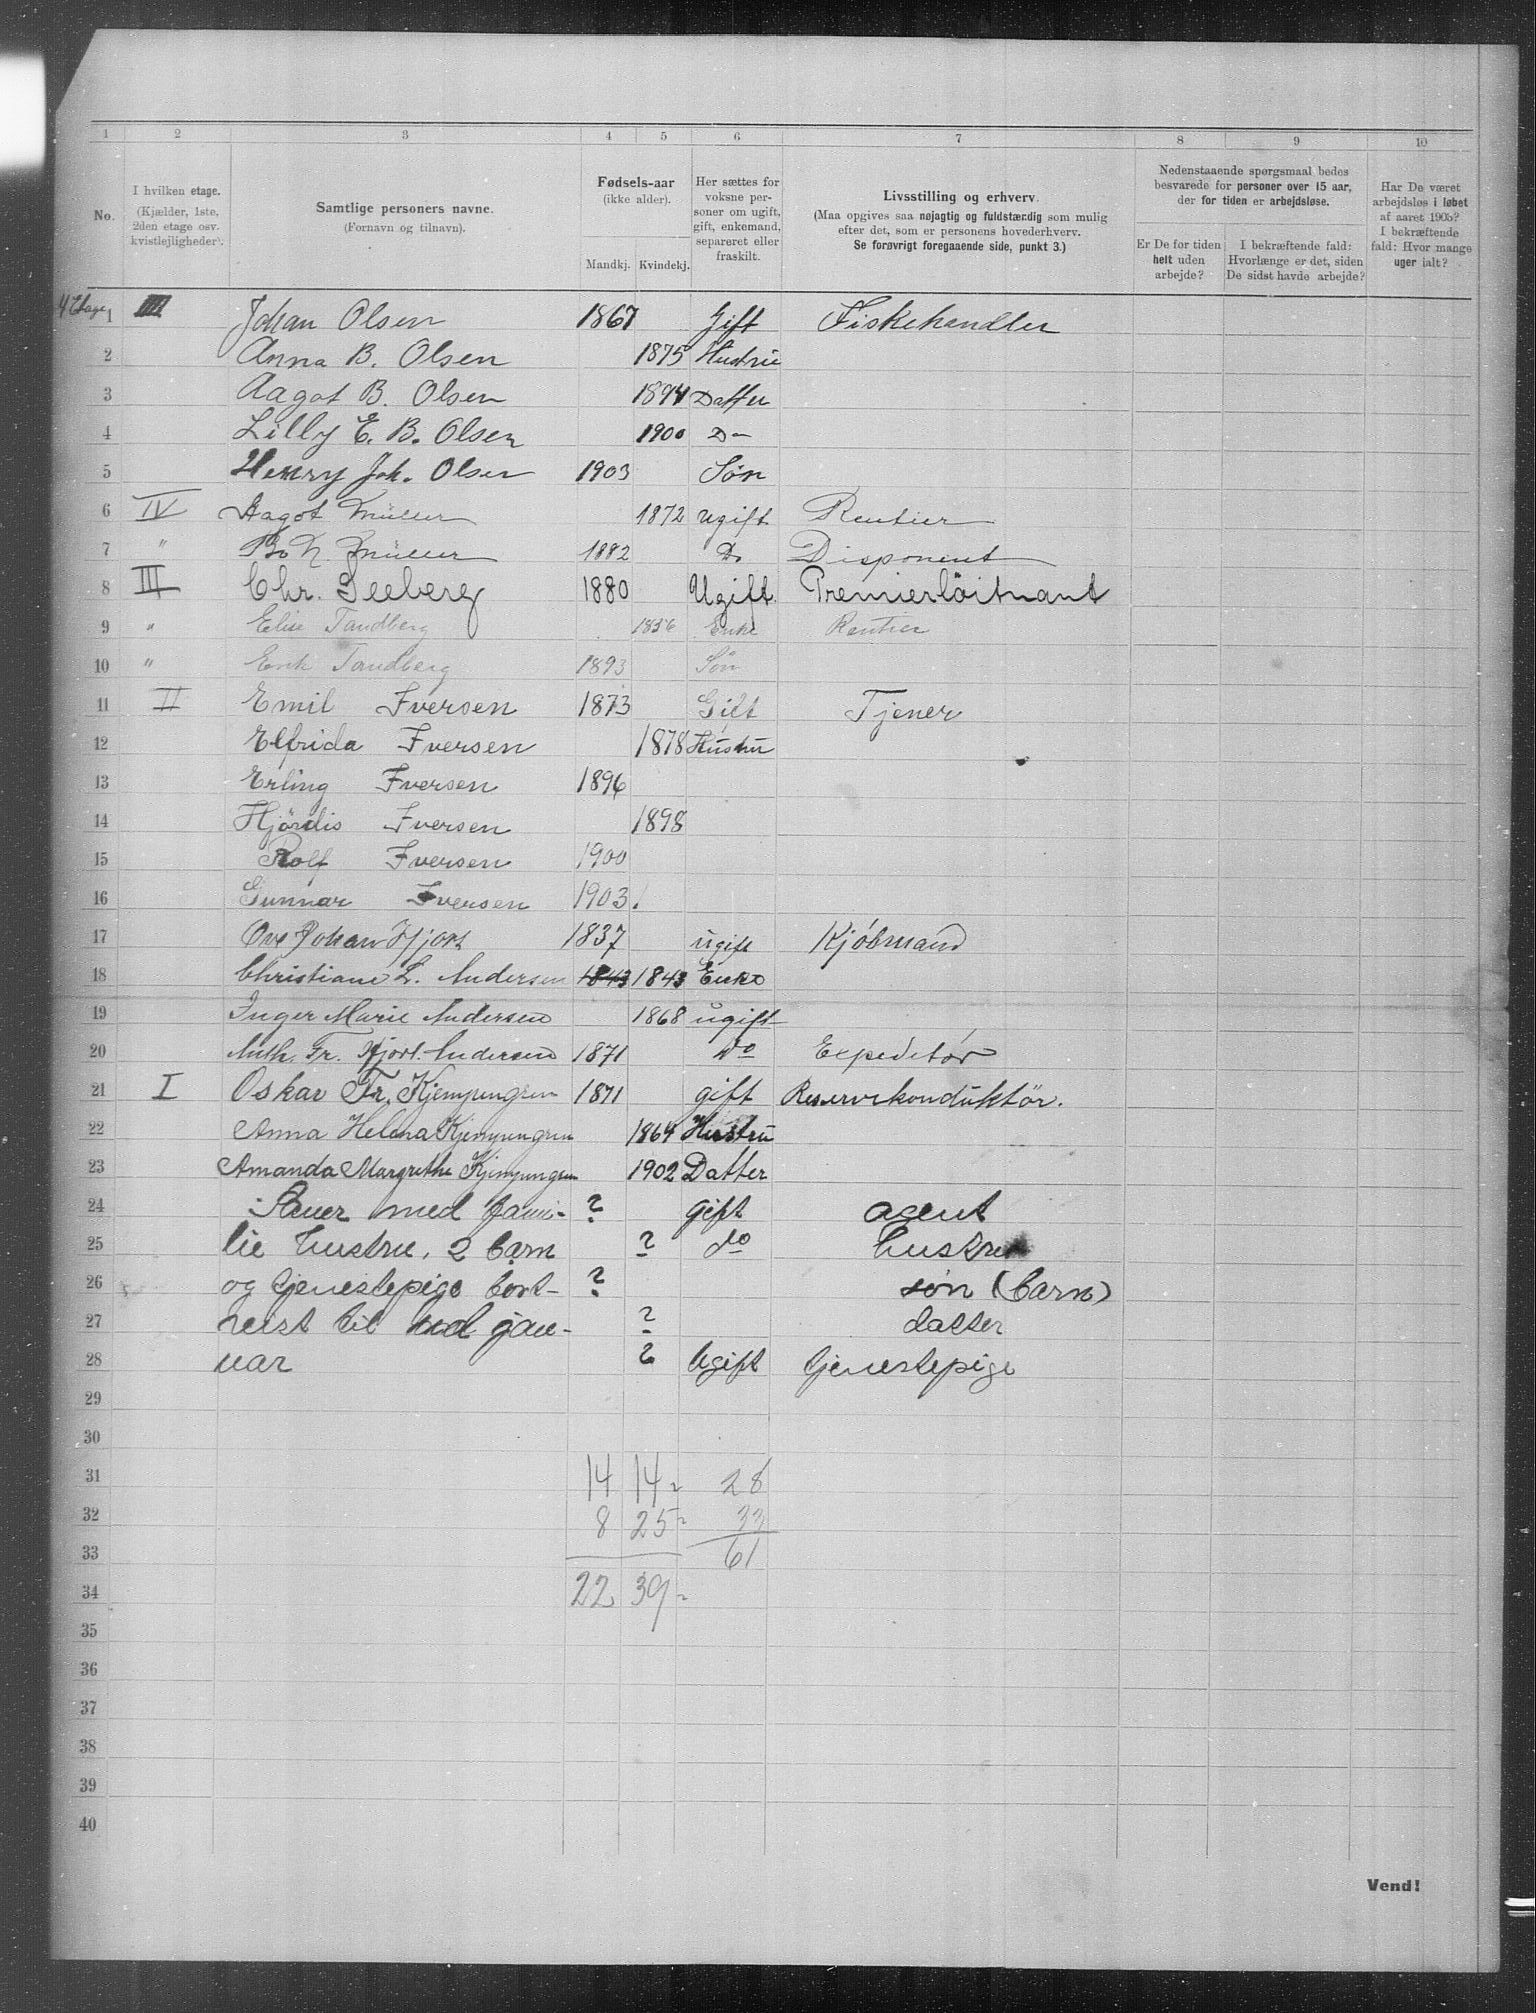 1 2 3 4 5 6 7 8 9 10
No.
I hvilken etage.
(Kjælder, 1ste,
2den etage osv.
kvistlejligheder).
Samtlige personers navne.
(Fornavn og tilnavn).
Fødsels-aar
(ikke alder).
Mandkj. Kvindekj.
Her sættes for
voksne per-
soner om ugift,
gift, enkemand,
separeret eller
fraskilt.
Livsstilling og erhverv.
(Maa opgives saa nøjagtig og fuldstændig som mulig
efter det, som er personens hovederhverv.
Se forøvrigt foregaaende side, punkt 3.)
Nedenstaaende spørgsmaal bedes
besvarede for personer over 15 aar,
der for tiden er arbejdsløse.
Er De for tiden
helt uden
arbejde?
I bekræftende fald:
Hvorlænge er det, siden
De sidst havde arbejde?
Har De været
arbejdsløs i løbet
af aaret 1903?
I bekræftende
fald: Hvor mange
uger ialt?
4 Etage 1 Johan Olsen 1867 Gift Fiskehandler
2 Anna B. Olsen 1875 Hustru
3 Aagot B. Olsen 1894 Datter
4 Lilly E. B. Olsen 1900 D—
5 Henry Joh. Olsen 1903 Søn
6 IV Aagot Müller 1872 ugift Rentier
7 " Müller 1882 Do Disponent
8 III Chr. Seeberg 1880 Ugift. Premierløitnant
9 " Elise Tandberg 1856 Enke Rentier
10 " Erik Tandberg 1893 Søn
11 II Emil Iversen 1873 Gift Tjener
12 Elfrida Iversen 1878 Hustru
13 Erling Iversen 1896
14 Hjördis Iversen 1898
15 Rolf Iversen 1900
16 Gunnar Iversen 1903.
17 Ove Johan Hjort 1837 ugift Kjøbmand
18 Christiane L. Andersen 1843 1843 Enke
19 Inger Marie Andersen 1868 ugift
20 Anth. Fr. Hjort Andersen 1871 do Expeditør
21 I Oskar Fr. Kjempengren 1871 gift Reservekonduktör.
22 Anna Helena Kjempengren 1864 Hustru
23 Amanda Margrethe Kjempengren 1902 Datter
24 med fami- ? gift agent
25 lie hustru, 2 barn ? do hustru
26 og tjenestepige bort- ? søn (barn)
27 reist til ud jan- ? datter
28 uar ? Ugift tjenestepige
29
30
31 14 14- 28
32 8 25- 33
33 61
34 22 39-
35
36
37
38
39
40
Vend!